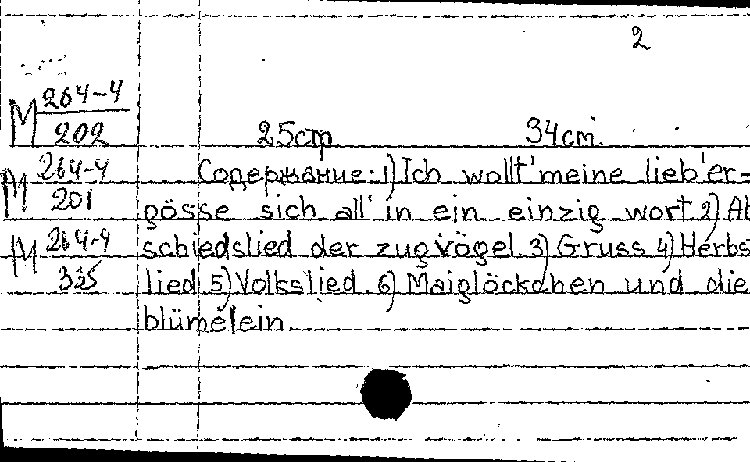 2
M 264-4
202
25стр. 34cm.
M 264-4 Содержание: 1) Ich wollt' meine lieb' er-
201 gösse sich all' in ein einzig wort 2) Ab
M 264-4 schiedslied der zugvögel. 3) Gruss 4) Herbs
335 lied 5) Volkslied. 6) Maiglöckchen und die
blümelein